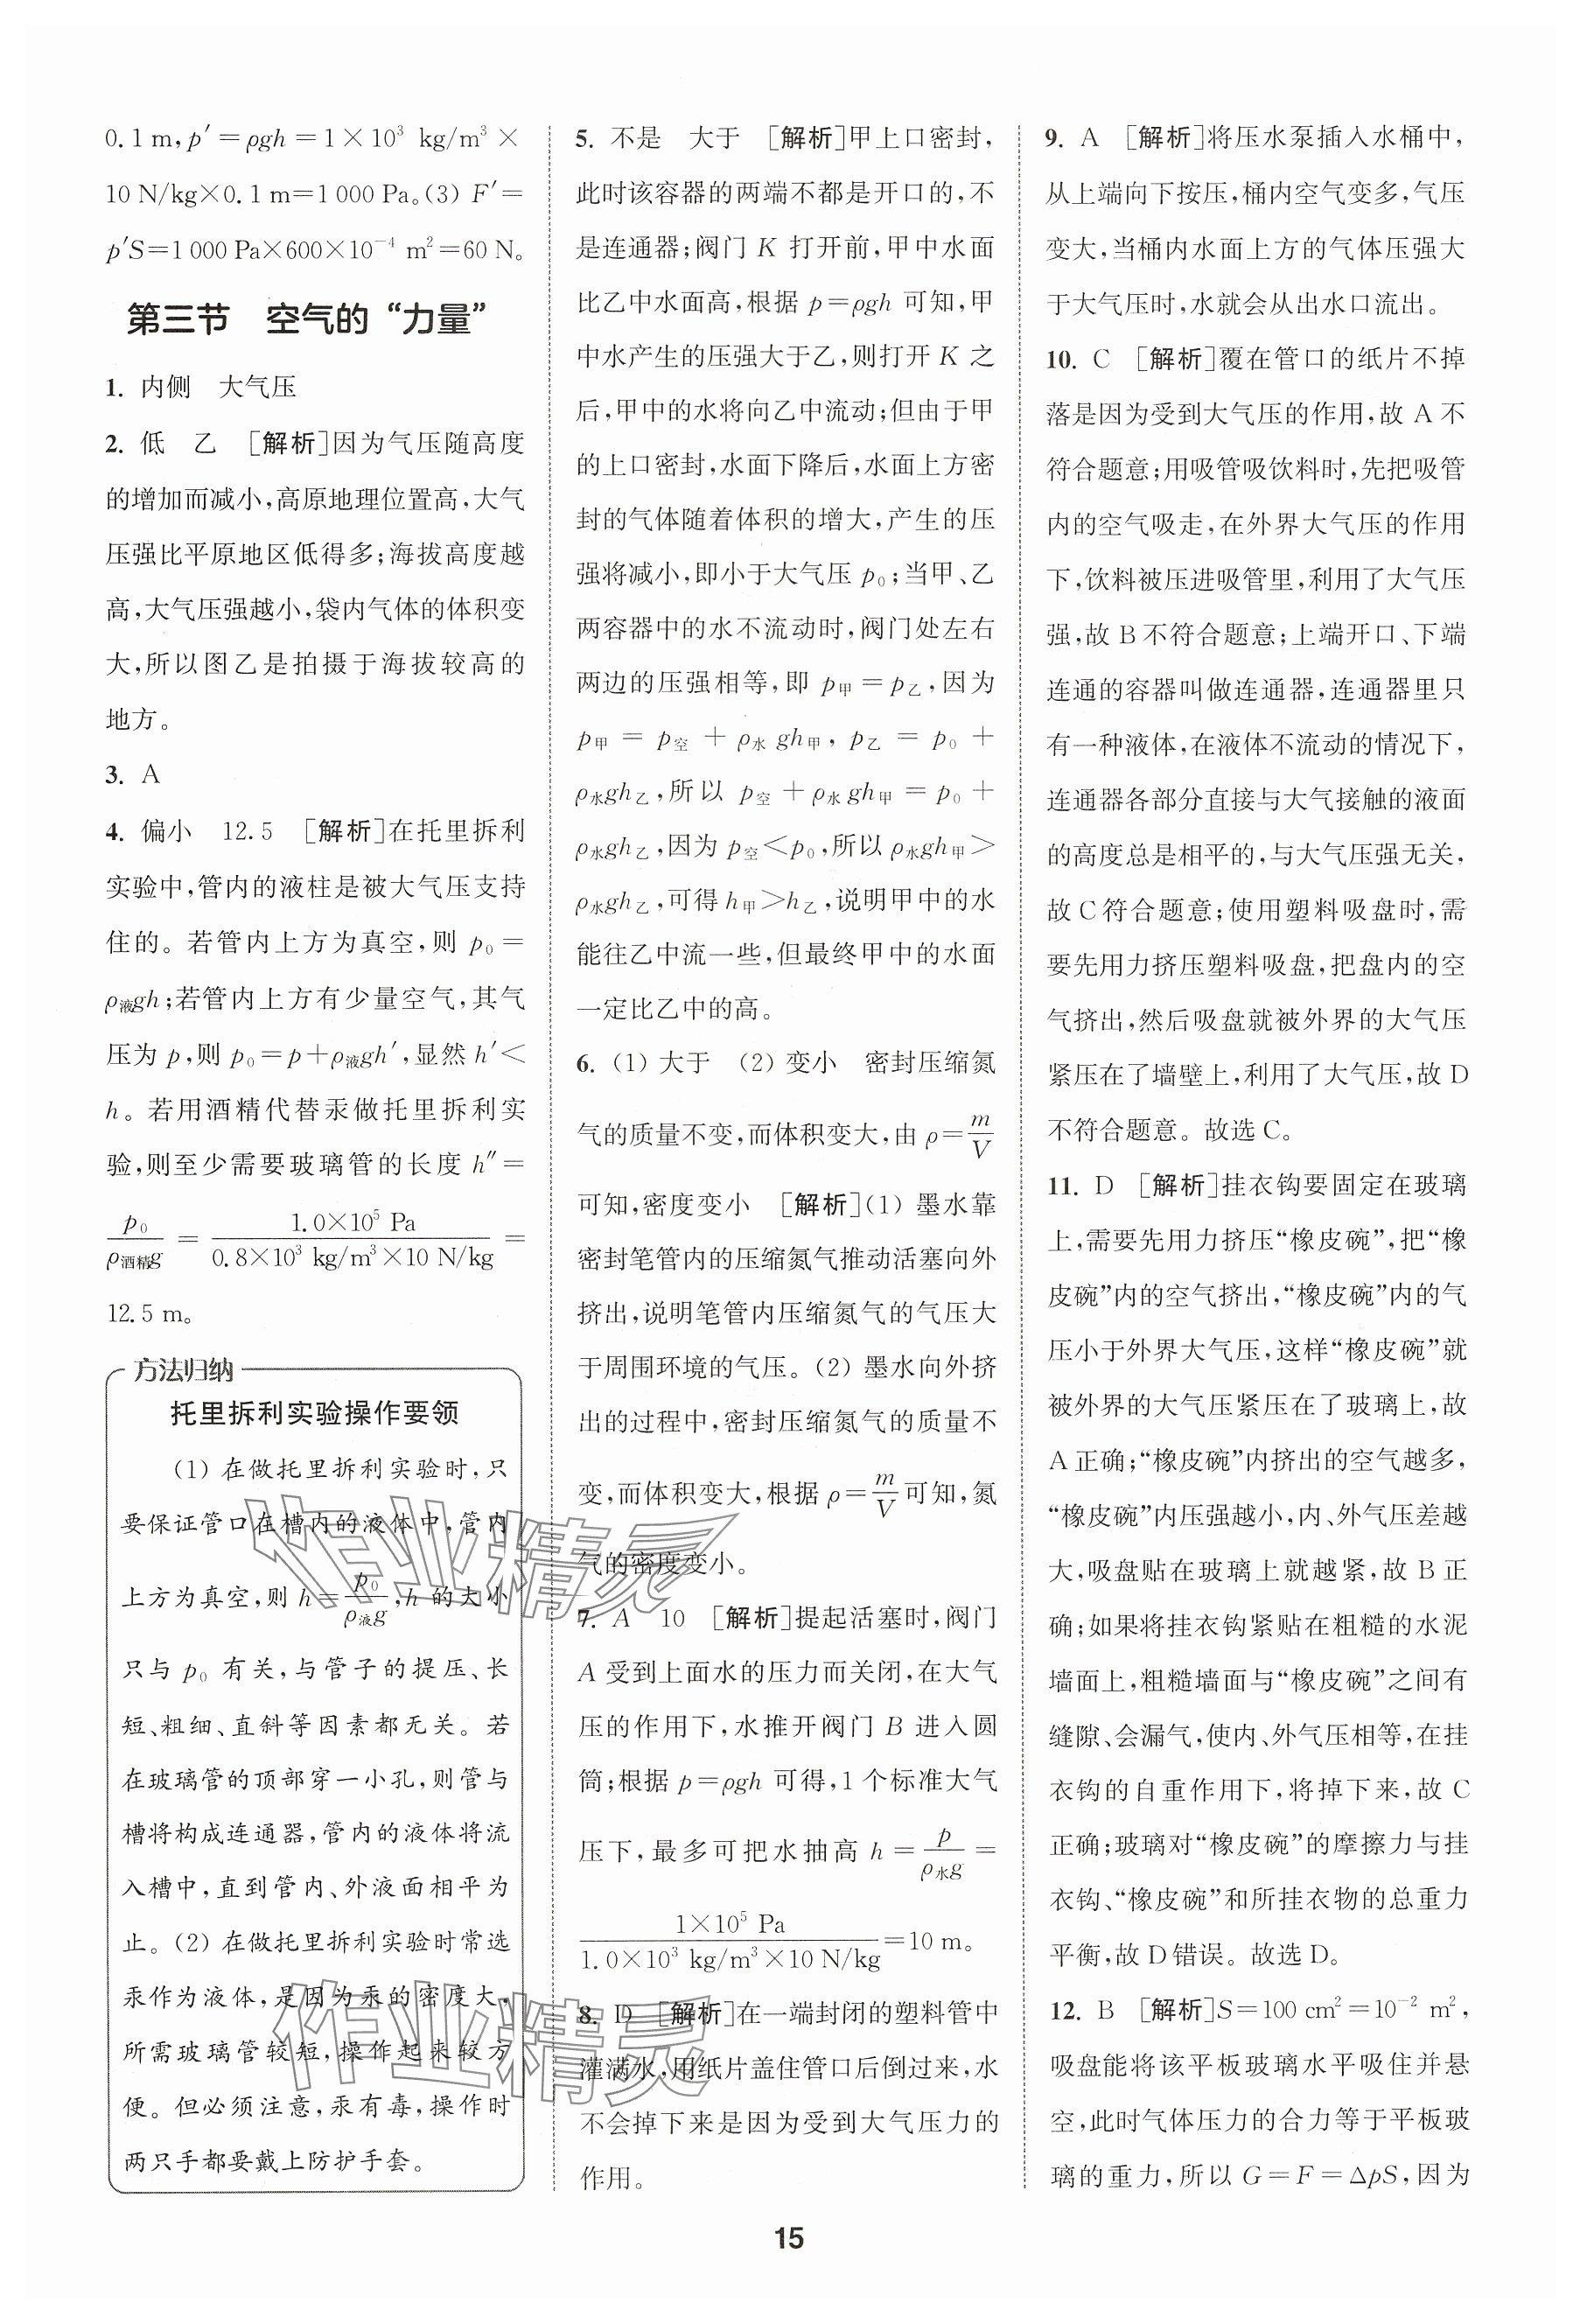 0.1 m,p′=ρgh=1×10³ kg/m³×
10 N/kg×0.1 m=1 000 Pa。(3) F′=
p′S=1 000 Pa×600×10⁻⁴ m²=60 N。
第三节 空气的“力量”
1. 内侧 大气压
2. 低 乙 [解析]因为气压随高度
的增加而减小,高原地理位置高,大气
压强比平原地区低得多;海拔高度越
高,大气压强越小,袋内气体的体积变
大,所以图乙是拍摄于海拔较高的
地方。
3. A
4. 偏小 12.5 [解析]在托里拆利
实验中,管内的液柱是被大气压支持
住的。若管内上方为真空,则 p₀=
ρ液gh;若管内上方有少量空气,其气
压为 p,则 p₀=p+ρ液gh′,显然 h′<
h。若用酒精代替汞做托里拆利实
验,则至少需要玻璃管的长度 h″=
p₀/ρ酒精g = 1.0×10⁵ Pa/0.8×10³ kg/m³×10 N/kg =
12.5 m。
方法归纳
托里拆利实验操作要领
(1) 在做托里拆利实验时,只
要保证管口在槽内的液体中,管内
上方为真空,则 h=p₀/ρ液g,h 的大小
只与 p₀ 有关,与管子的提压、长
短、粗细、直斜等因素都无关。若
在玻璃管的顶部穿一小孔,则管与
槽将构成连通器,管内的液体将流
入槽中,直到管内、外液面相平为
止。(2) 在做托里拆利实验时常选
汞作为液体,是因为汞的密度大,
所需玻璃管较短,操作起来较方
便。但必须注意,汞有毒,操作时
两只手都要戴上防护手套。
5. 不是 大于 [解析]甲上口密封,
此时该容器的两端不都是开口的,不
是连通器;阀门 K 打开前,甲中水面
比乙中水面高,根据 p=ρgh 可知,甲
中水产生的压强大于乙,则打开 K 之
后,甲中的水将向乙中流动;但由于甲
的上口密封,水面下降后,水面上方密
封的气体随着体积的增大,产生的压
强将减小,即小于大气压 p₀;当甲、乙
两容器中的水不流动时,阀门处左右
两边的压强相等,即 p甲=p乙,因为
p甲 = p空 + ρ水gh甲, p乙 = p₀ +
ρ水gh乙,所以 p空+ρ水gh甲=p₀+
ρ水gh乙,因为 p空<p₀,所以 ρ水gh甲>
ρ水gh乙,可得 h甲>h乙,说明甲中的水
能往乙中流一些,但最终甲中的水面
一定比乙中的高。
6. (1) 大于 (2) 变小 密封压缩氮
气的质量不变,而体积变大,由 ρ=m/V
可知,密度变小 [解析](1) 墨水靠
密封笔管内的压缩氮气推动活塞向外
挤出,说明笔管内压缩氮气的气压大
于周围环境的气压。(2) 墨水向外挤
出的过程中,密封压缩氮气的质量不
变,而体积变大,根据 ρ=m/V可知,氮
气的密度变小。
7. A 10 [解析]提起活塞时,阀门
A 受到上面水的压力而关闭,在大气
压的作用下,水推开阀门 B 进入圆
筒;根据 p=ρgh 可得,1 个标准大气
压下,最多可把水抽高 h=p/ρ水g=
1×10⁵ Pa/1.0×10³ kg/m³×10 N/kg=10 m。
8. D [解析]在一端封闭的塑料管中
灌满水,用纸片盖住管口后倒过来,水
不会掉下来是因为受到大气压力的
作用。
9. A [解析]将压水泵插入水桶中,
从上端向下按压,桶内空气变多,气压
变大,当桶内水面上方的气体压强大
于大气压时,水就会从出水口流出。
10. C [解析]覆在管口的纸片不掉
落是因为受到大气压的作用,故 A 不
符合题意;用吸管吸饮料时,先把吸管
内的空气吸走,在外界大气压的作用
下,饮料被压进吸管里,利用了大气压
强,故 B 不符合题意;上端开口、下端
连通的容器叫做连通器,连通器里只
有一种液体,在液体不流动的情况下,
连通器各部分直接与大气接触的液面
的高度总是相平的,与大气压强无关,
故 C 符合题意;使用塑料吸盘时,需
要先用力挤压塑料吸盘,把盘内的空
气挤出,然后吸盘就被外界的大气压
紧压在了墙壁上,利用了大气压,故 D
不符合题意。故选 C。
11. D [解析]挂衣钩要固定在玻璃
上,需要先用力挤压“橡皮碗”,把“橡
皮碗”内的空气挤出,“橡皮碗”内的气
压小于外界大气压,这样“橡皮碗”就
被外界的大气压紧压在了玻璃上,故
A 正确;“橡皮碗”内挤出的空气越多,
“橡皮碗”内压强越小,内、外气压差越
大,吸盘贴在玻璃上就越紧,故 B 正
确;如果将挂衣钩紧贴在粗糙的水泥
墙面上,粗糙墙面与“橡皮碗”之间有
缝隙、会漏气,使内、外气压相等,在挂
衣钩的自重作用下,将掉下来,故 C
正确;玻璃对“橡皮碗”的摩擦力与挂
衣钩、“橡皮碗”和所挂衣物的总重力
平衡,故 D 错误。故选 D。
12. B [解析]S=100 cm²=10⁻² m²,
吸盘能将该平板玻璃水平吸住并悬
空,此时气体压力的合力等于平板玻
璃的重力,所以 G=F=ΔpS,因为
作业精灵
作业精灵
15